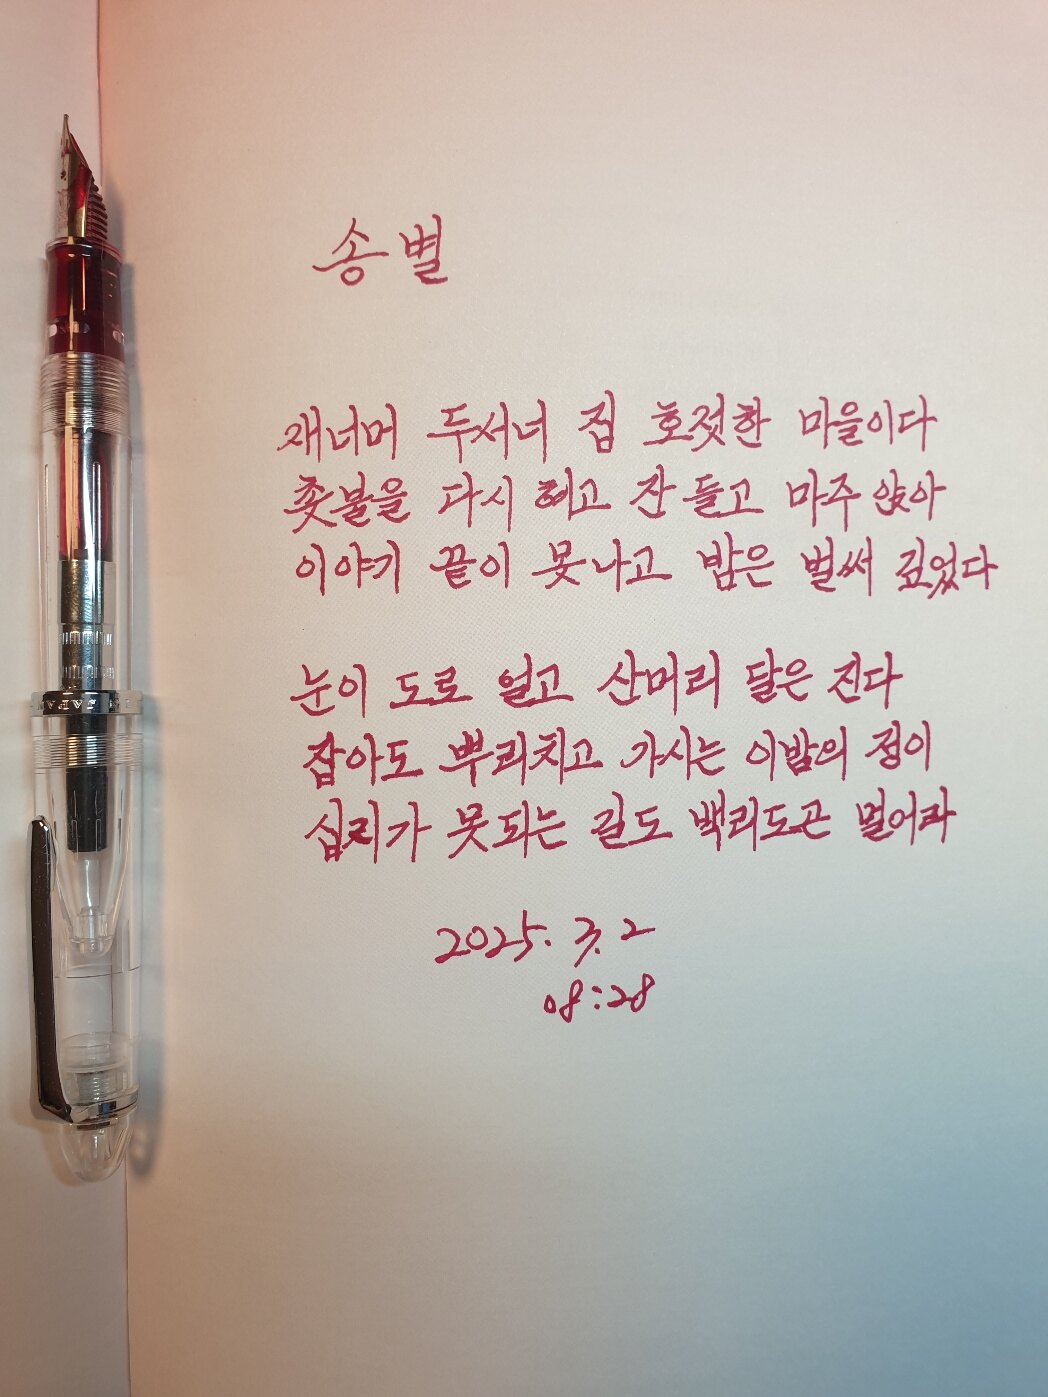 송별
재너머 두서너 집 호젓한 마을이다
촛불을 다시 혀고 잔 들고 마주 앉아
이야기 끝이 못나고 밤은 벌써 깊었다
눈이 도로 얼고 산머리 달은 진다
잡아도 뿌리치고 가시는 이밤의 정이
십리가 못되는 길도 백리도곤 멀어라
2025. 3. 2
08:28